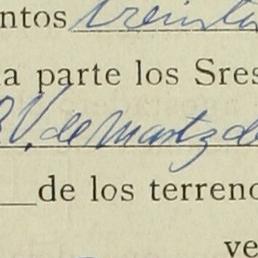 ntos treinta
a parte los Sres
V. de Martz de
de los terreno
ve